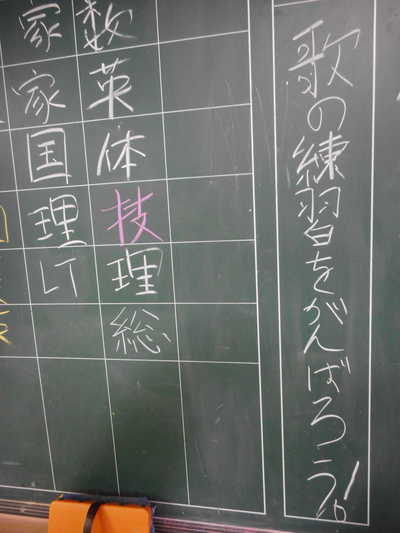 歌の練習をがんばろう!
数
英
体
技
理
総
家
家
国
理
LT